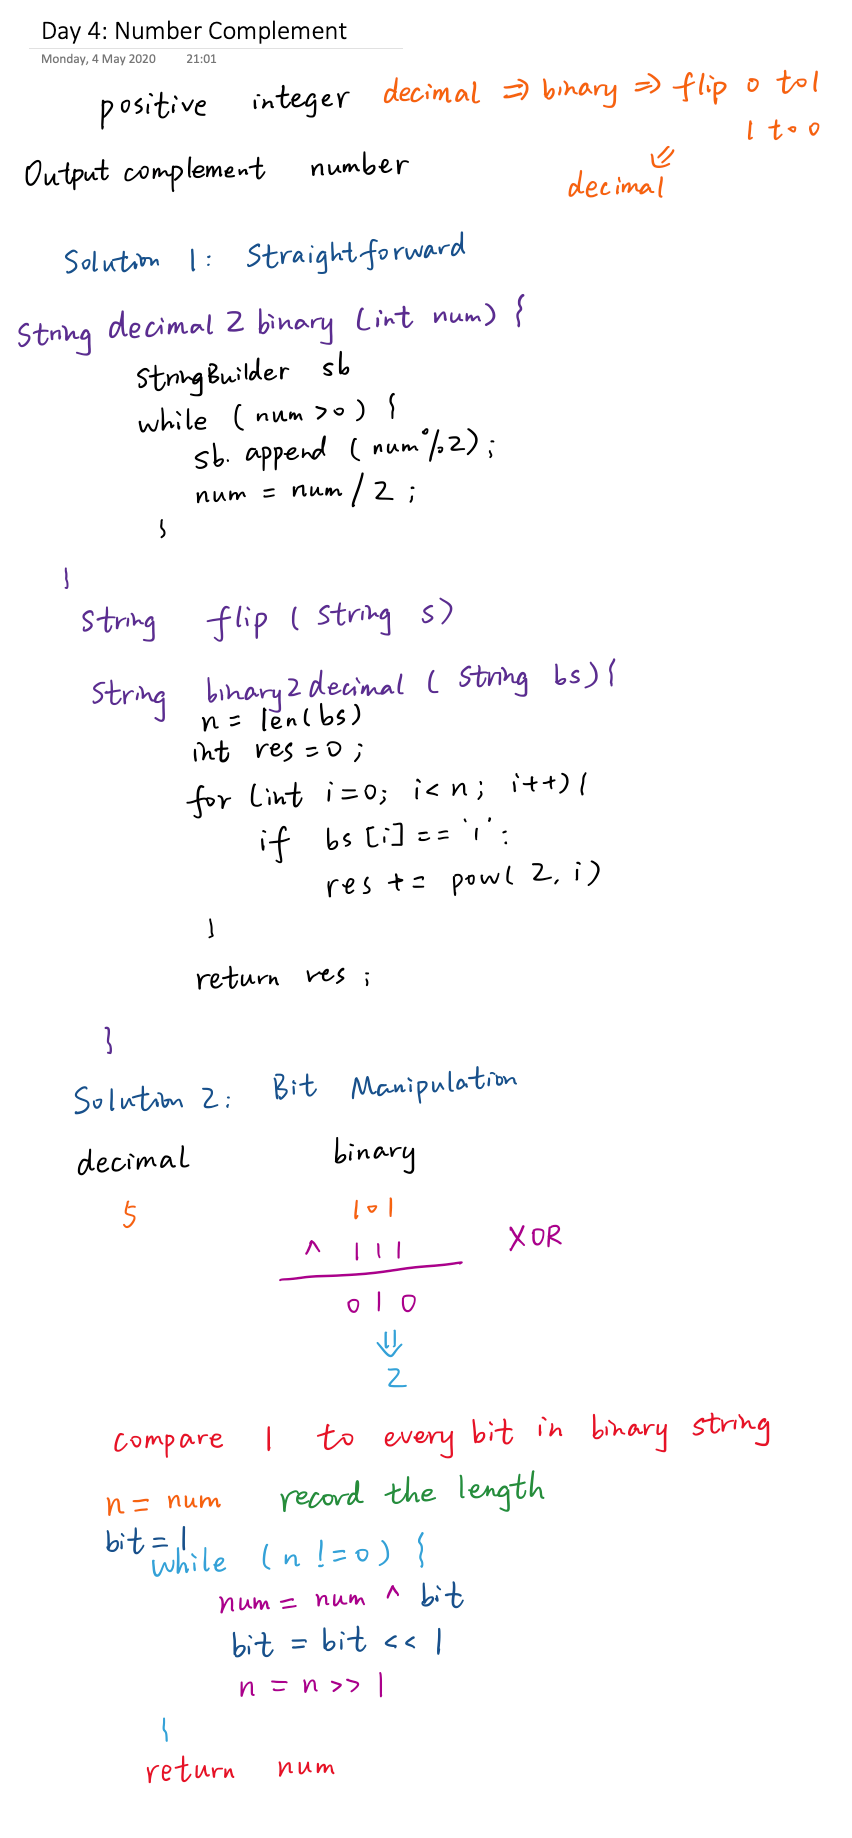 Day 4: Number Complement
Monday, 4 May 2020 21:01
positive integer decimal => binary => flip 0 to 1
1 to 0
Output complement number
decimal
Solution 1: Straightforward
String decimal 2 binary (int num) {
StringBuilder sb
while (num>0) {
sb. append (num%2);
num = num / 2 ;
}
}
String flip (String s)
String binary2decimal ( String bs){
n = len(bs)
int res = 0 ;
for (int i=0; i<n; i++){
if bs [i] == '1' :
res += pow( 2, i)
}
return res ;
}
Solution 2: Bit Manipulation
decimal binary
5 101
^ 111 XOR
010
⇓
2
compare 1 to every bit in binary string
n = num record the length
bit = 1
while (n !=0) {
num = num ^ bit
bit = bit << 1
n = n >> 1
}
return num